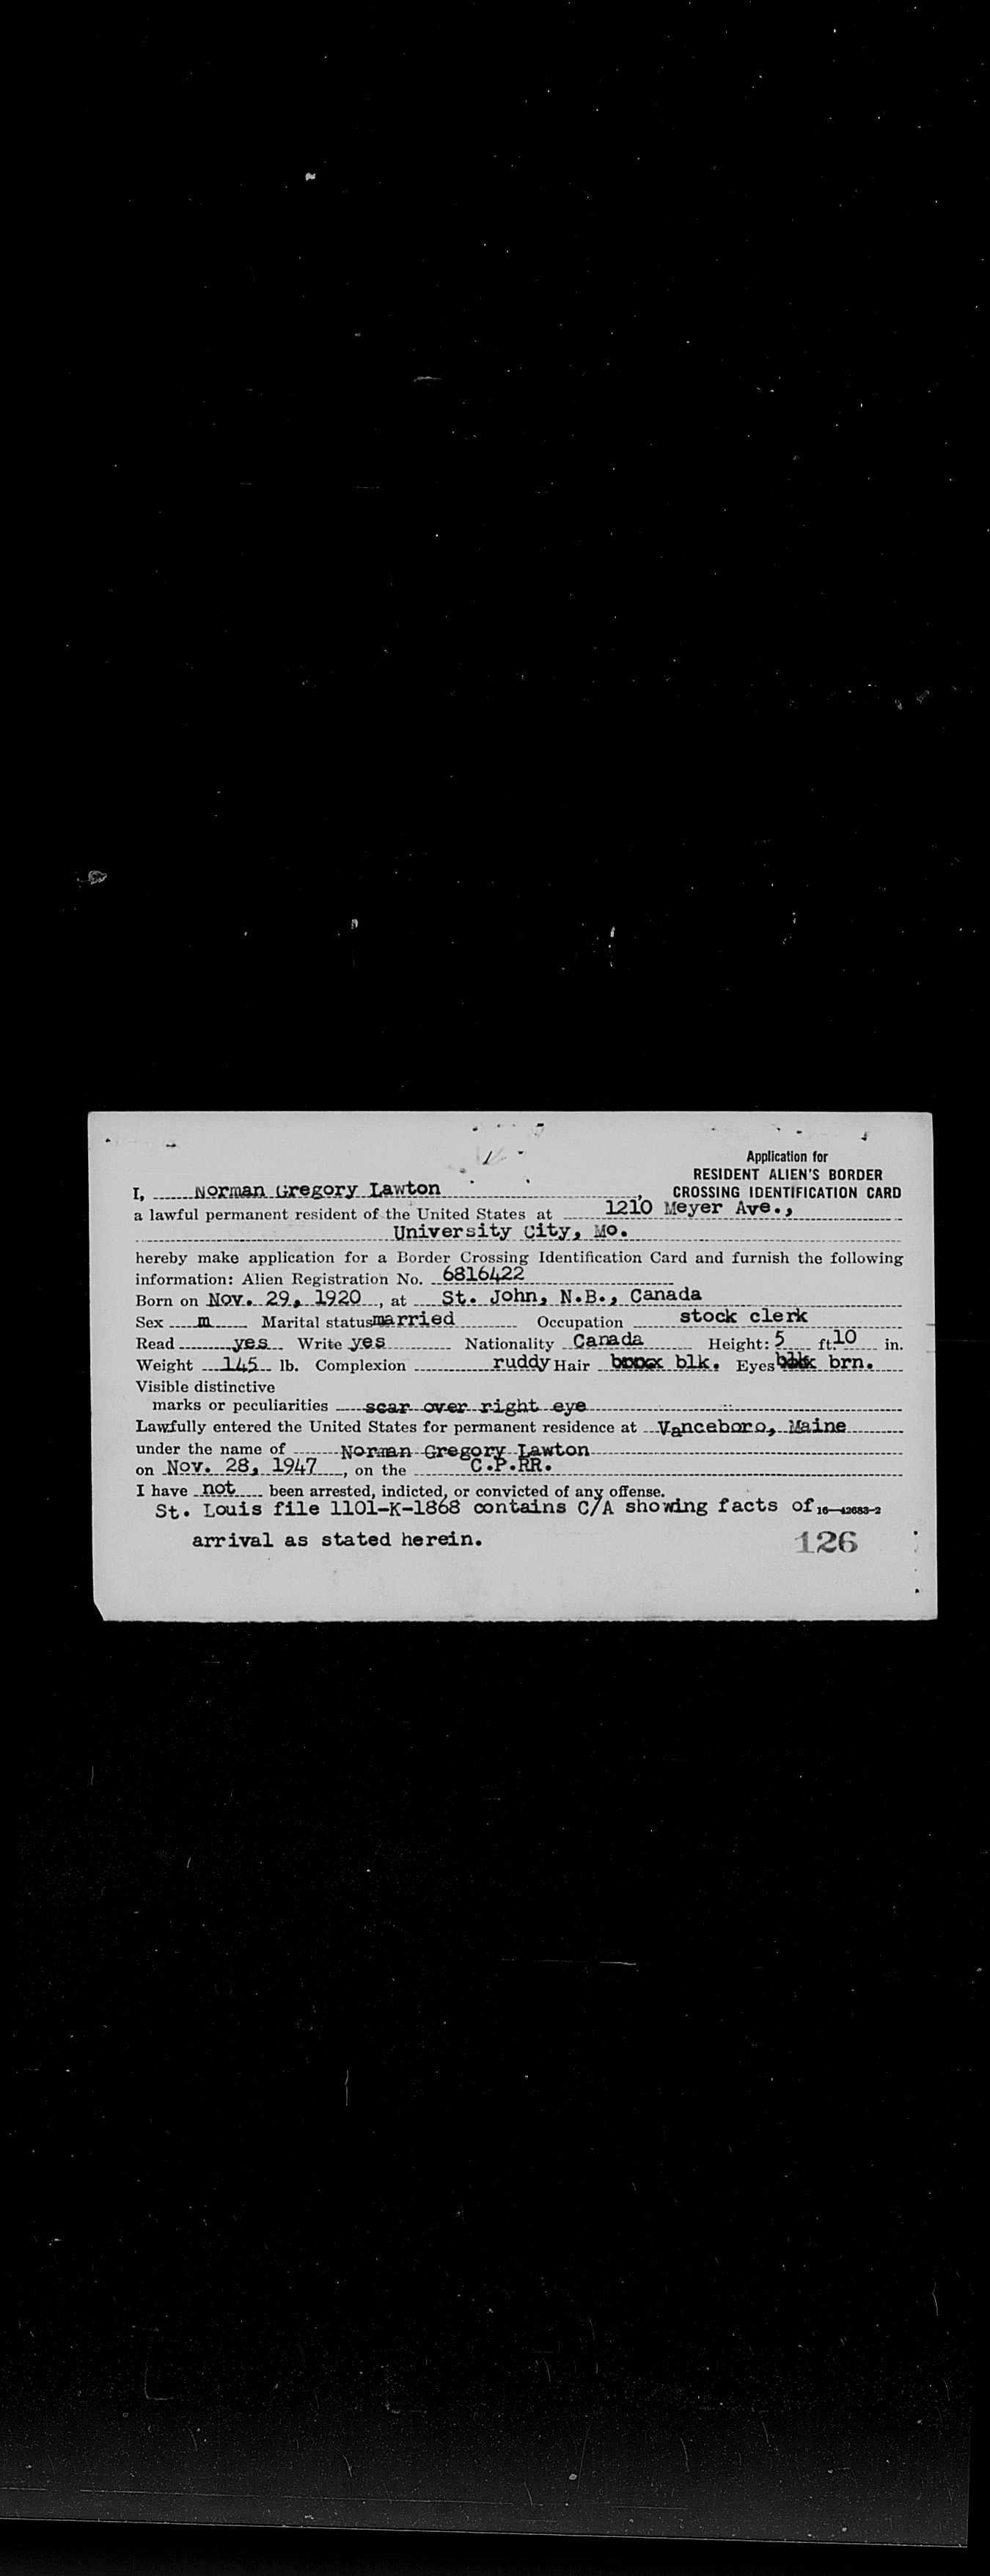 Application for
RESIDENT ALIEN'S BORDER
CROSSING IDENTIFICATION CARD
I, Norman Gregory Lawton,
a lawful permanent resident of the United States at 1210 Meyer Ave.,
University City, Mo.
hereby make application for a Border Crossing Identification Card and furnish the following
information: Alien Registration No. 6816422
Born on Nov. 29, 1920, at St. John, N.B., Canada
Sex m Marital status married Occupation stock clerk
Read yes Write yes Nationality Canada Height: 5 ft. 10 in.
Weight 145 lb. Complexion ruddy Hair blk. Eyes brn.
Visible distinctive
marks or peculiarities scar over right eye
Lawfully entered the United States for permanent residence at Vanceboro, Maine
under the name of Norman Gregory Lawton
on Nov. 28, 1947, on the C.P.RR.
I have not been arrested, indicted, or convicted of any offense.
St. Louis file 1101-K-1868 contains C/A showing facts of 16—42683-2
arrival as stated herein.
126